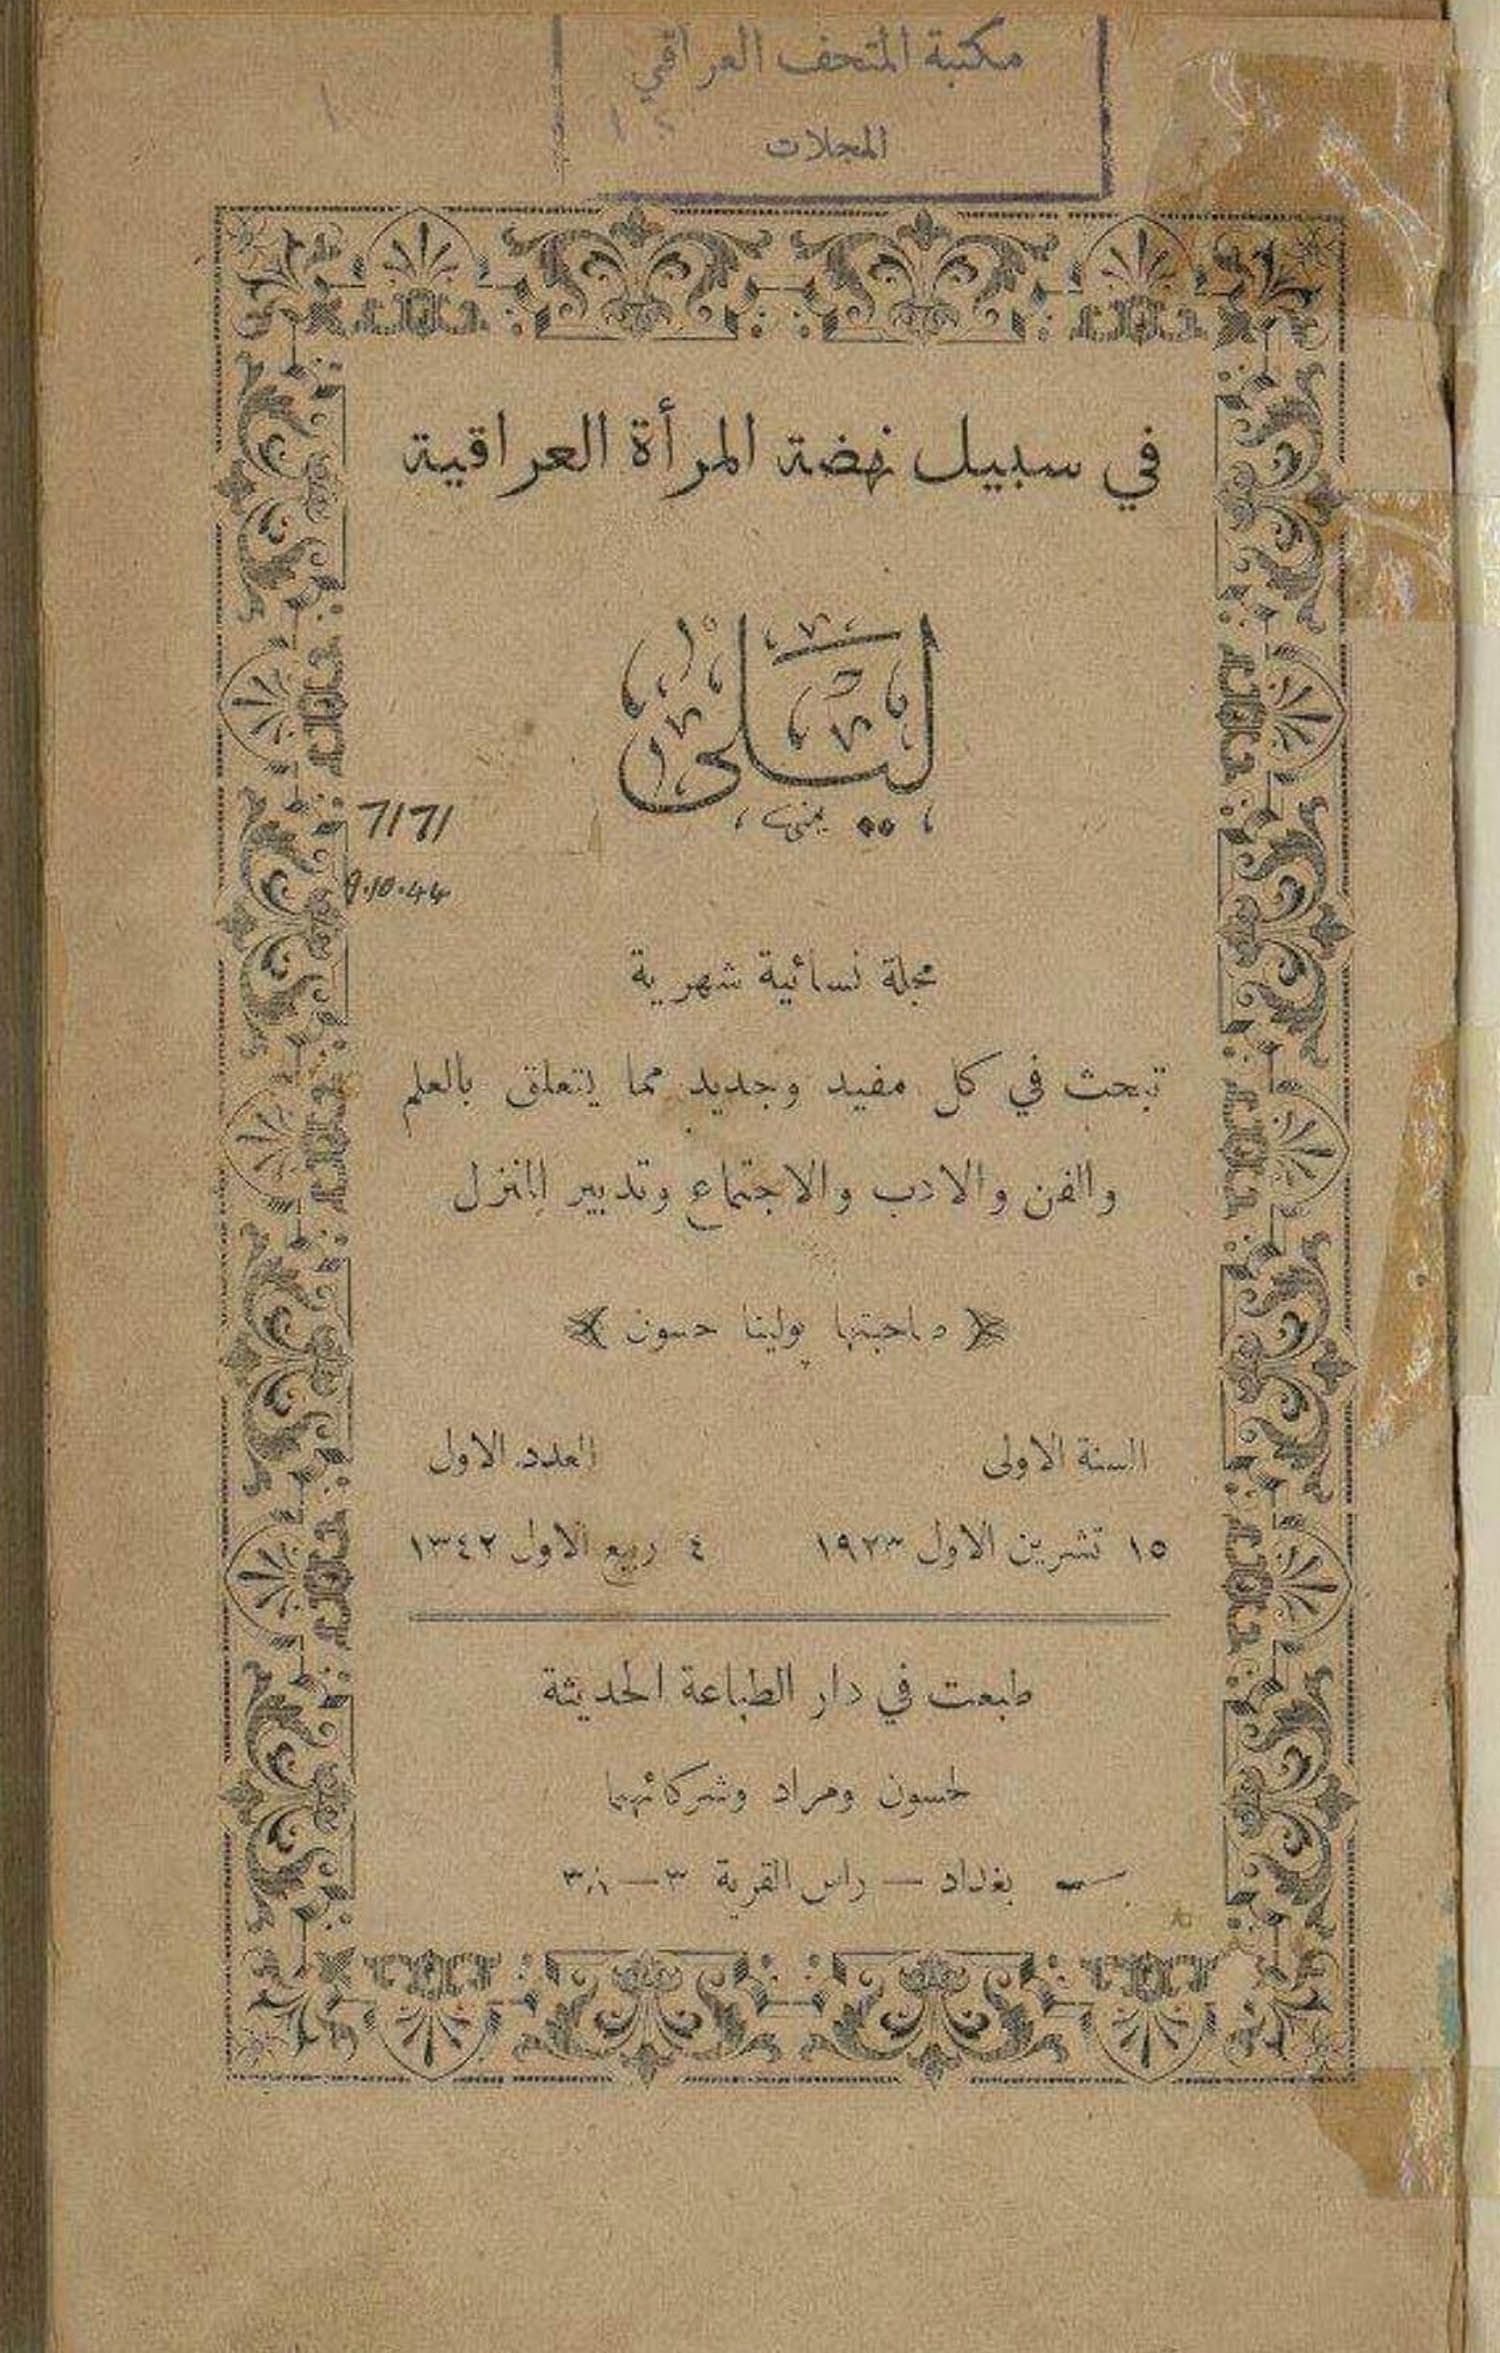 مكتبة المتحف العراقي
المجلات
في سبيل نهضة المرأة العراقية
ليلى
7171
9.10.44
مجلة نسائية شهرية
تبحث في كل مفيد وجديد مما يتعلق بالعلم
والفن والادب والاجتماع وتدبير المنزل
صاحبتها بولينا حسون
السنة الاولى العدد الاول
١٥ تشرين الاول ١٩٢٣ ٤ ربيع الاول ١٣٤٢
طبعت في دار الطباعة الحديثة
لحسون ومراد وشركائهما
بغداد — راس القرية ٣—